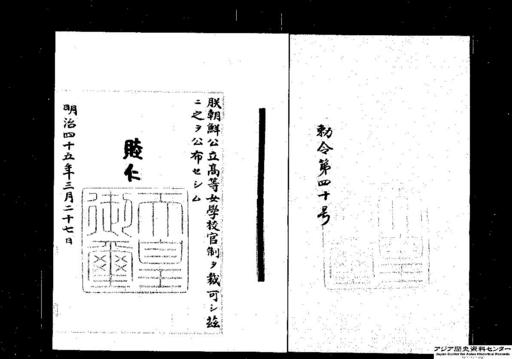 勅令第四十号
朕朝鮮公立高等女學校官制ヲ裁可シ茲
ニ之ヲ公布セシム
睦仁
天皇
御璽
明治四十五年三月二十七日
アジア歴史資料センター
Japan Center for Asian Historical Records